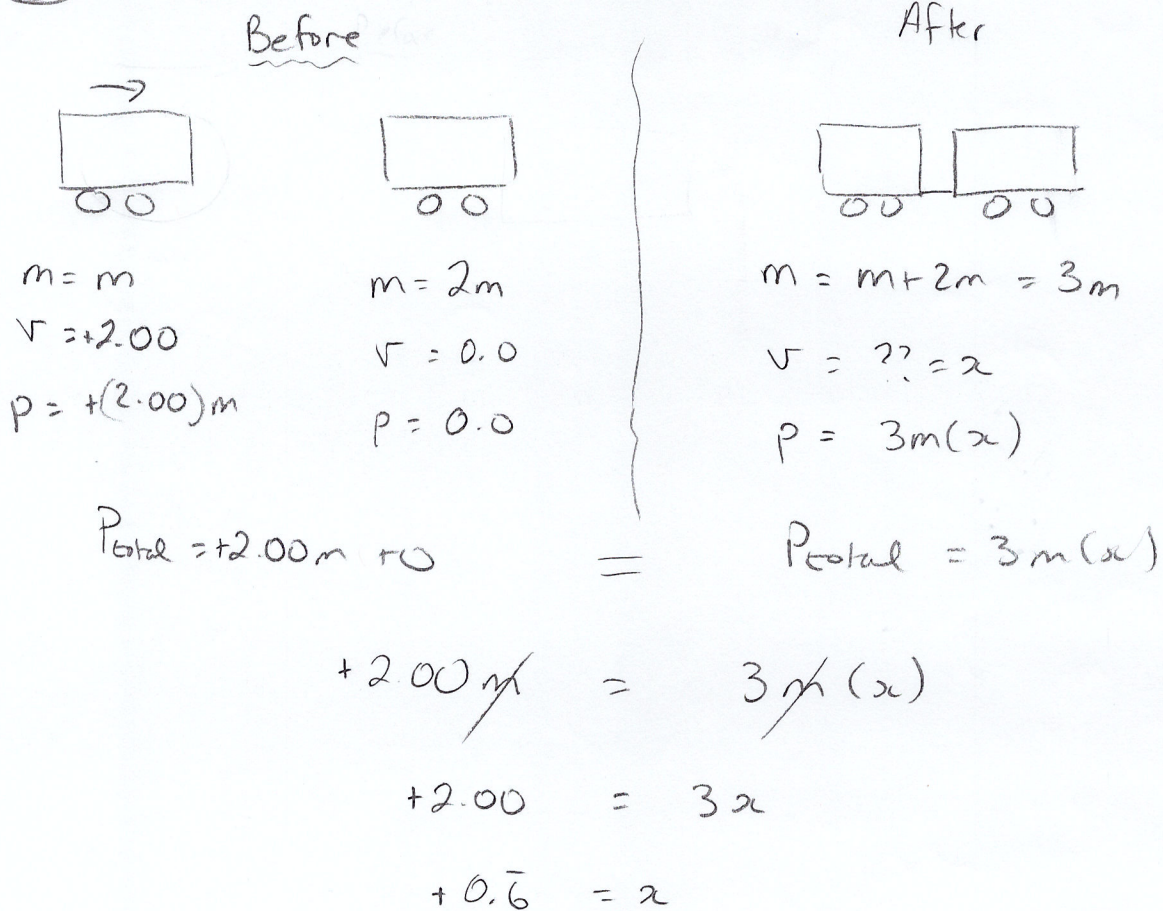 Before
After
m = m
v = +2.00
p = +(2.00)m
m = 2m
v = 0.0
p = 0.0
m = m + 2m = 3m
v = ?? = x
p = 3m(x)
Ptotal = +2.00m + 0 = Ptotal = 3m(x)
+2.00m = 3m(x)
+2.00 = 3x
+0.6̄ = x